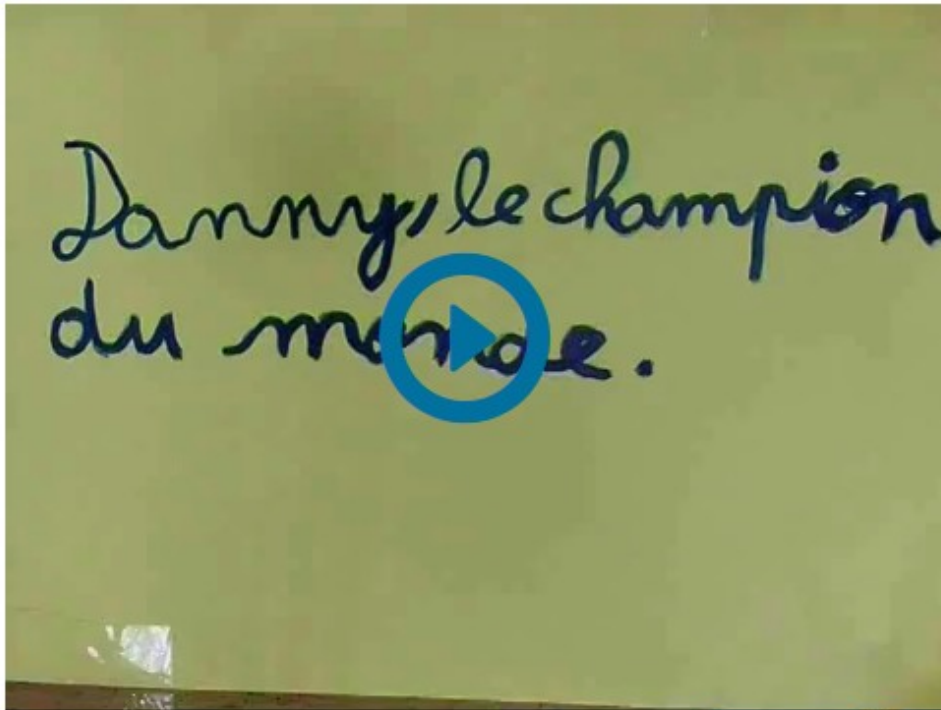 Danny, le champion
du monde.